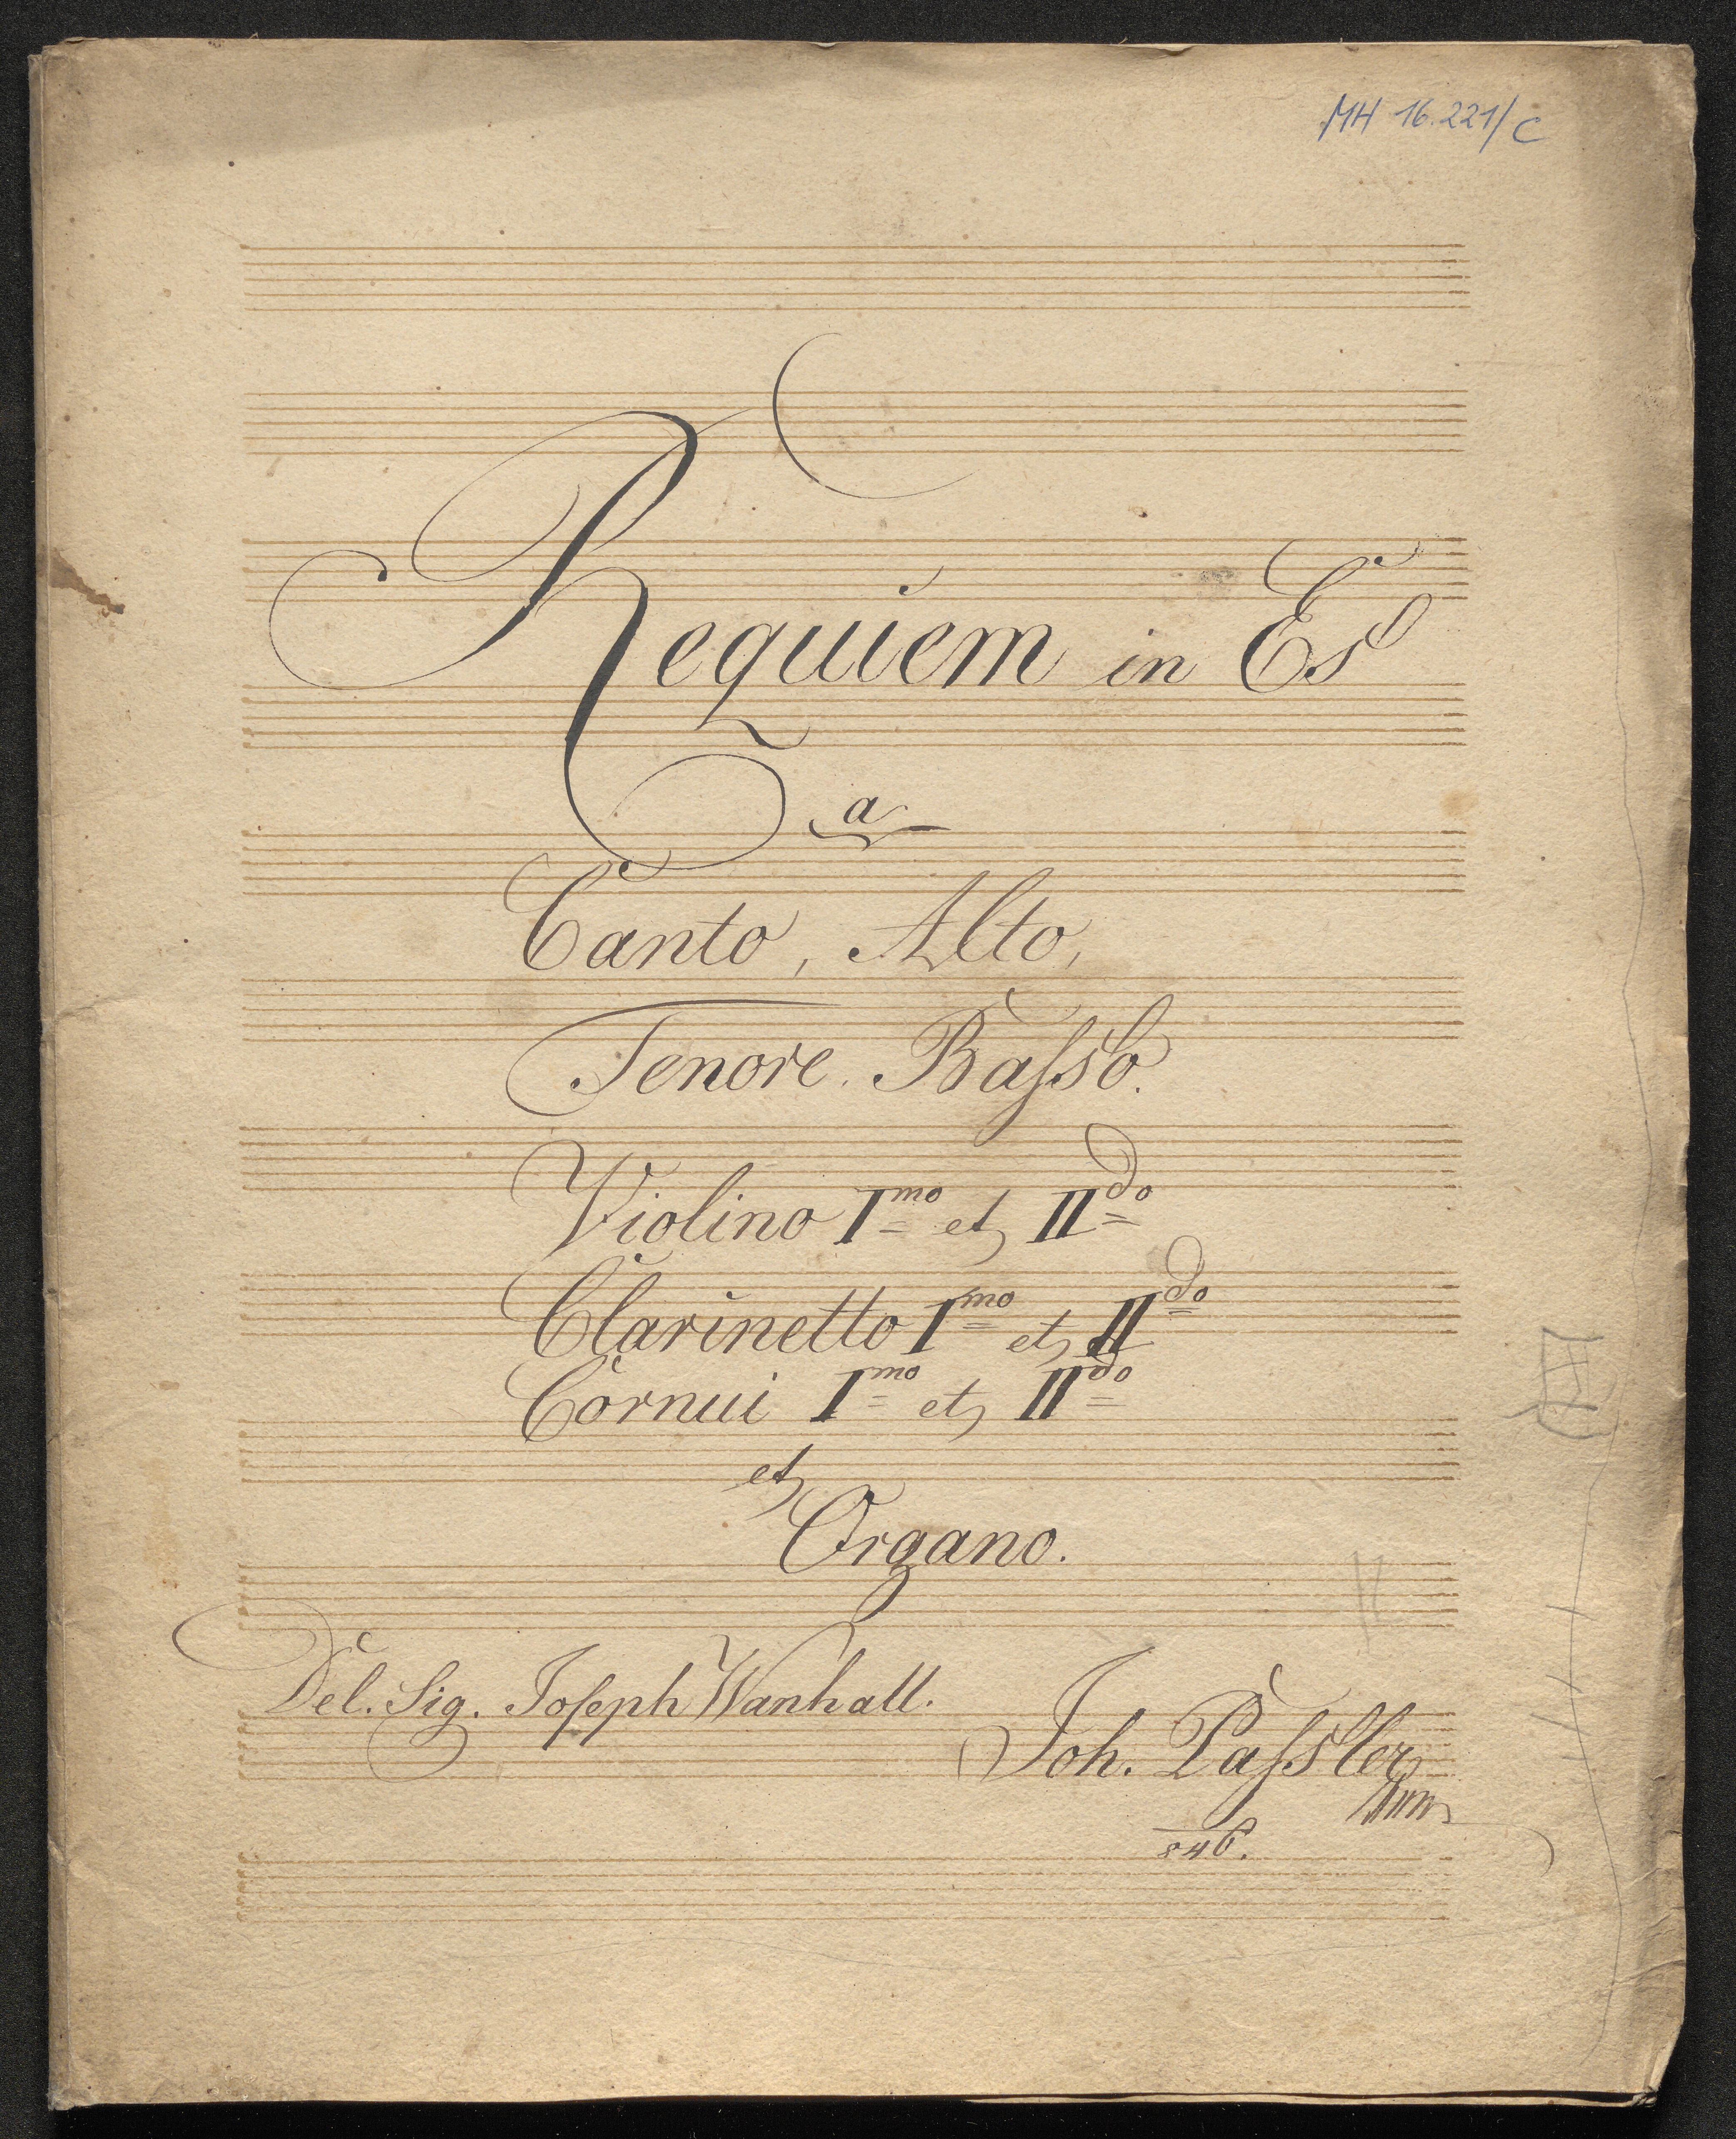 MH 16.221/C
Requiem in Es
a
Canto, Alto,
Tenore. Baſso.
Violino Imo et IIdo
Clarinetto Imo et IIdo
Cornui Imo et IIdo
et
Organo.
Del. Sig. Joſeph Wanhall.
Joh. Paſsler
846.